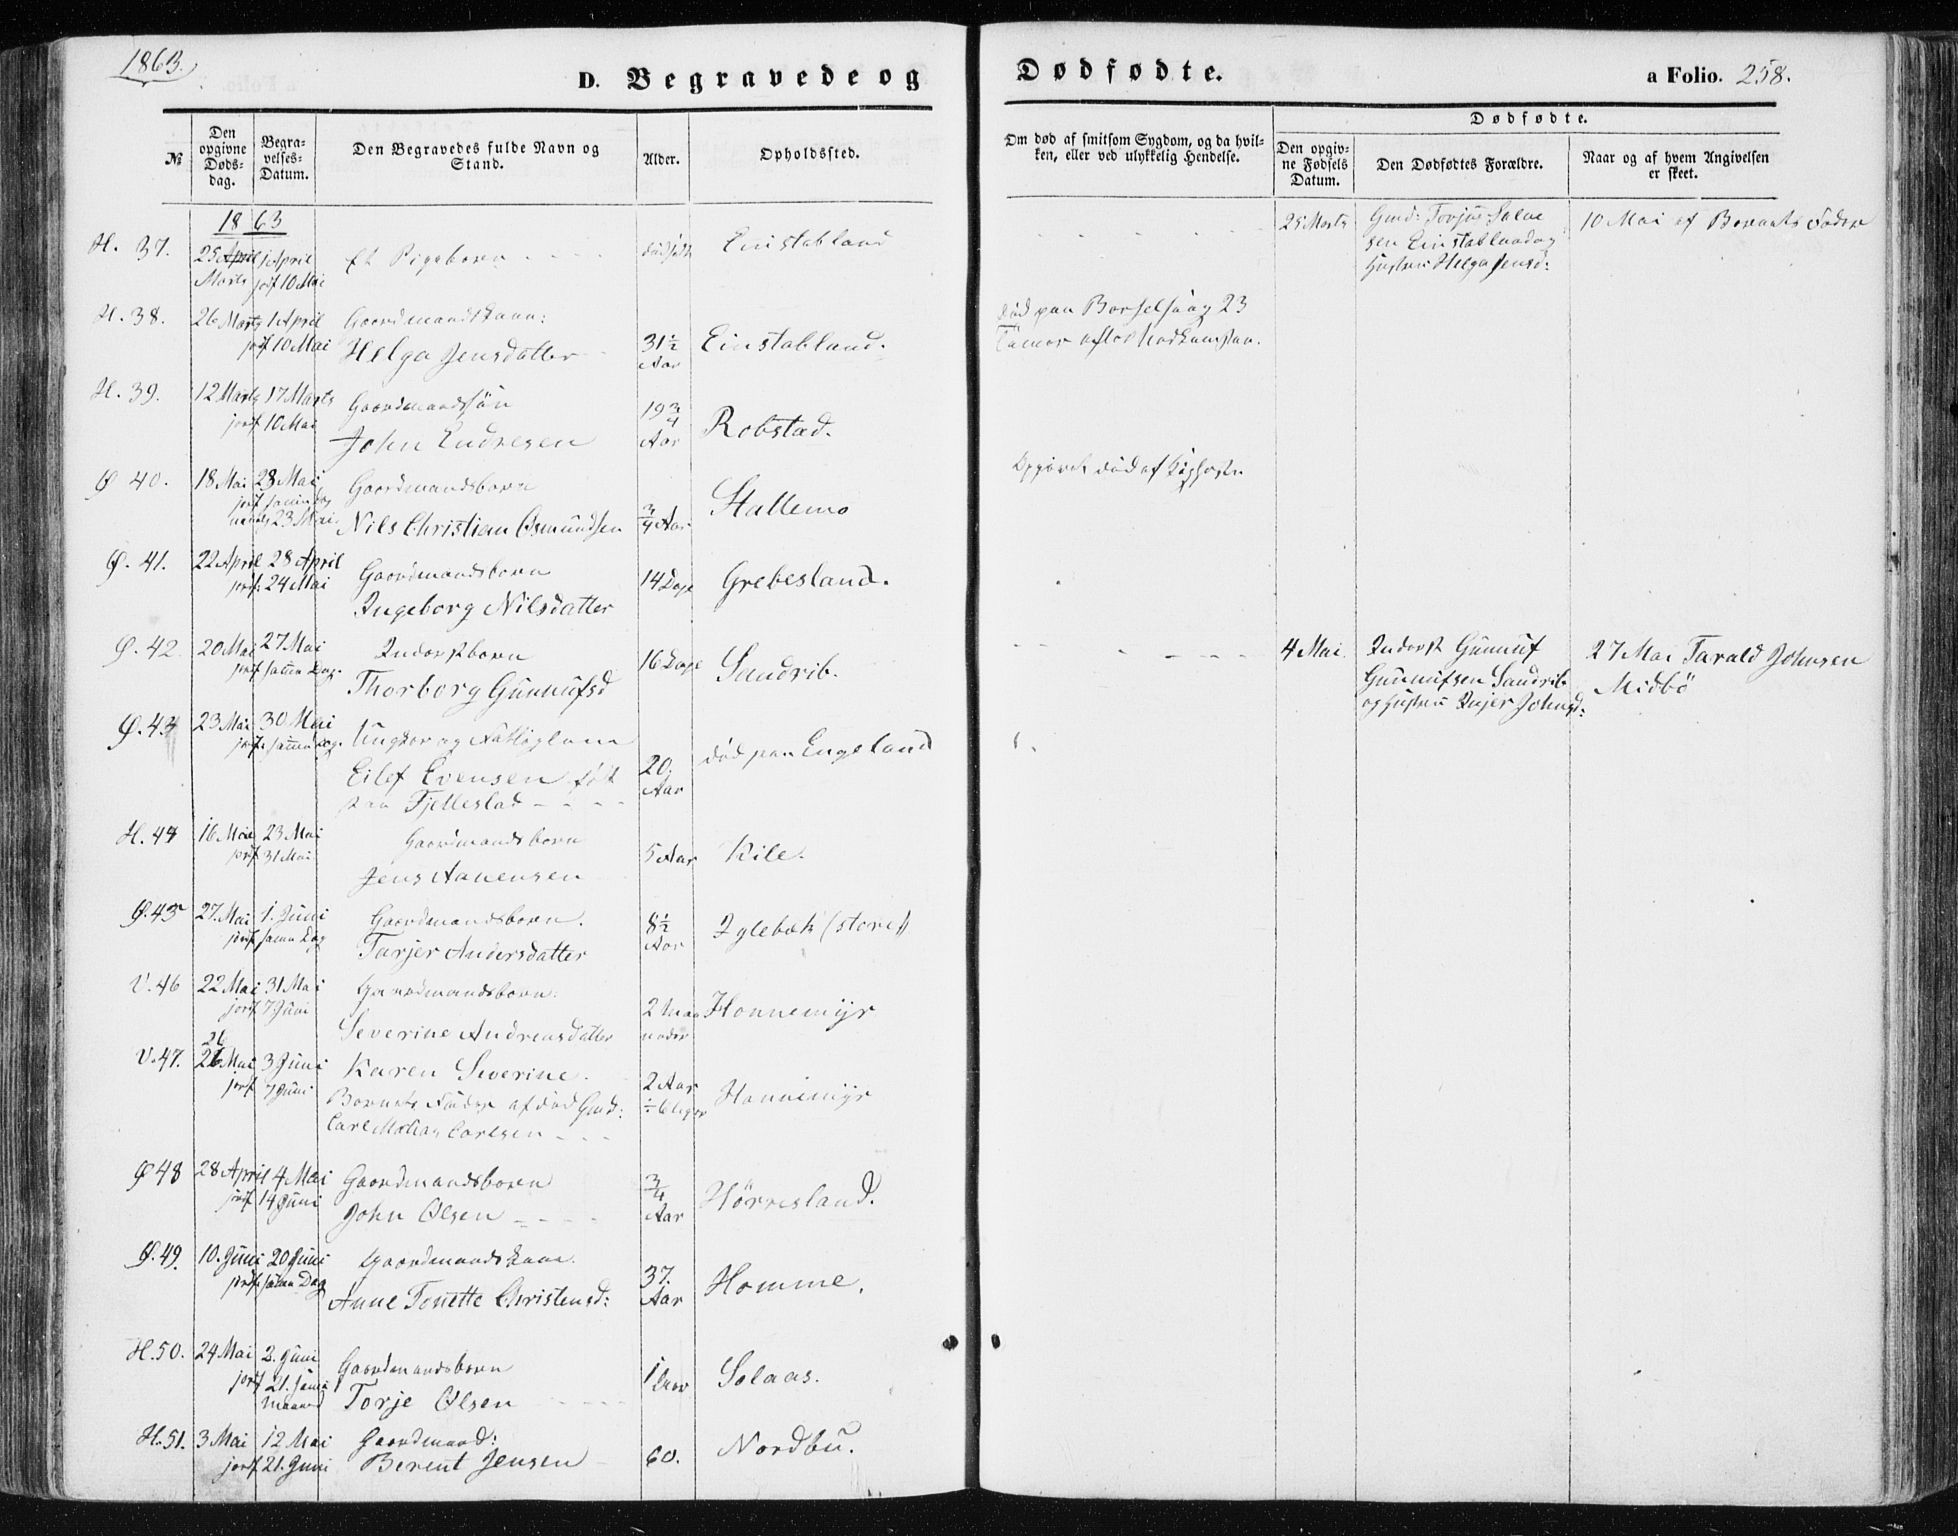 1863.
D. Begravede og Dødfødte.
a Folio. 258.
№
Den opgivne Døds-dag.
Begra-velses-Datum.
Den Begravedes fulde Navn og Stand.
Alder.
Opholdssted.
Om død af smitsom Sygdom, og da hvil-ken, eller ved ulykkelig Hendelse.
Dødfødte.
Den opgiv-ne Fødsels Datum.
Den Dødfødtes Forældre.
Naar og af hvem Angivelsen er skeet.
1863
H. 37. 25 April 1 April Et Pigebarn dødfødt Einstabland
Marts jordf 10 Mai
25 Marts Gmd: Torjus Salve
sen Einstabland og
Hustru Helga Jensd:
10 Mai af Barnets Fader
H. 38. 26 Marts 1 April Gaardmandskone:
jordf 10 Mai Helga Jensdatter 31½ Aar Einstabland.
død paa Barselseng 23
Timer efter Nedkomsten.
H. 39. 12 Marts 17 Marts Gaardmandssøn
jordf 10 Mai John Endresen 19¾ Aar Robstad.
Ø 40. 18 Mai 23 Mai Gaardmandsbarn
jordf samme Dag
23 Mai Nils Christian Osmundsen ¾ Aar Stallemo
Opgivet død af Kighoste
Ø. 41. 22 April 28 April Gaardmandsbarn
jordf: 24 Mai Ingeborg Nilsdatter 14 Dage Grebesland.
Ø. 42. 20 Mai 27 Mai Inderstbarn
jordf samme Dag. Thorborg Gunnufsd 16 Dage Sandrib.
4 Mai Inderst Gunnuf
Gunnufsen Sandrib
og Hustru Inger Johnsd:
27 Mai Tarald Johnsen
Midbö
Ø. 43 23 Mai 30 Mai Ungkar og Fattiglem
jordf samme Dag. Eilef Evensen født
paa Fjellestad 20. Aar død paa Engeland
H. 44 16 Mai 23 Mai Gaardmandsbarn
jordf 31 Mai Jens Aanensen 5 Aar Kile.
Ø. 45 27. Mai 1. Juni Gaardmandsbarn.
jordf samme Dag Tarjer Andersdatter 8½ Aar Lylebæk (store)
V. 46 22 Mai 31 Mai Gaardmandsbarn:
jordf 7 Juni Severine Andreasdatter 2 Maaneder Honnemyr
V. 47. 26 Mai 3 Juni Karen Severine.
26
jordf 7 Juni Barnets Fader er død Gmd:
Carl Mathias Carlsen 2 Aar Honnemyr
Ø 48 28 April 4 Mai Gaardmandsbarn
jordf 14 Juni John Olsen ¾ Aar Hörresland.
Ø. 49. 10. Juni 20 Juni Gaardmandskone.
jordf samme Dag Anne Tonette Christensd: 37. Aar Homme.
H. 50. 24 Mai 2. Juni Gaardmandsbarn
jordf 21. Juni Torje Olsen 1 Solaas.
H. 51. 3 Mai 12 Mai Gaardmand:
jordf 21. Juni Berent Jensen 60. Nordbu.